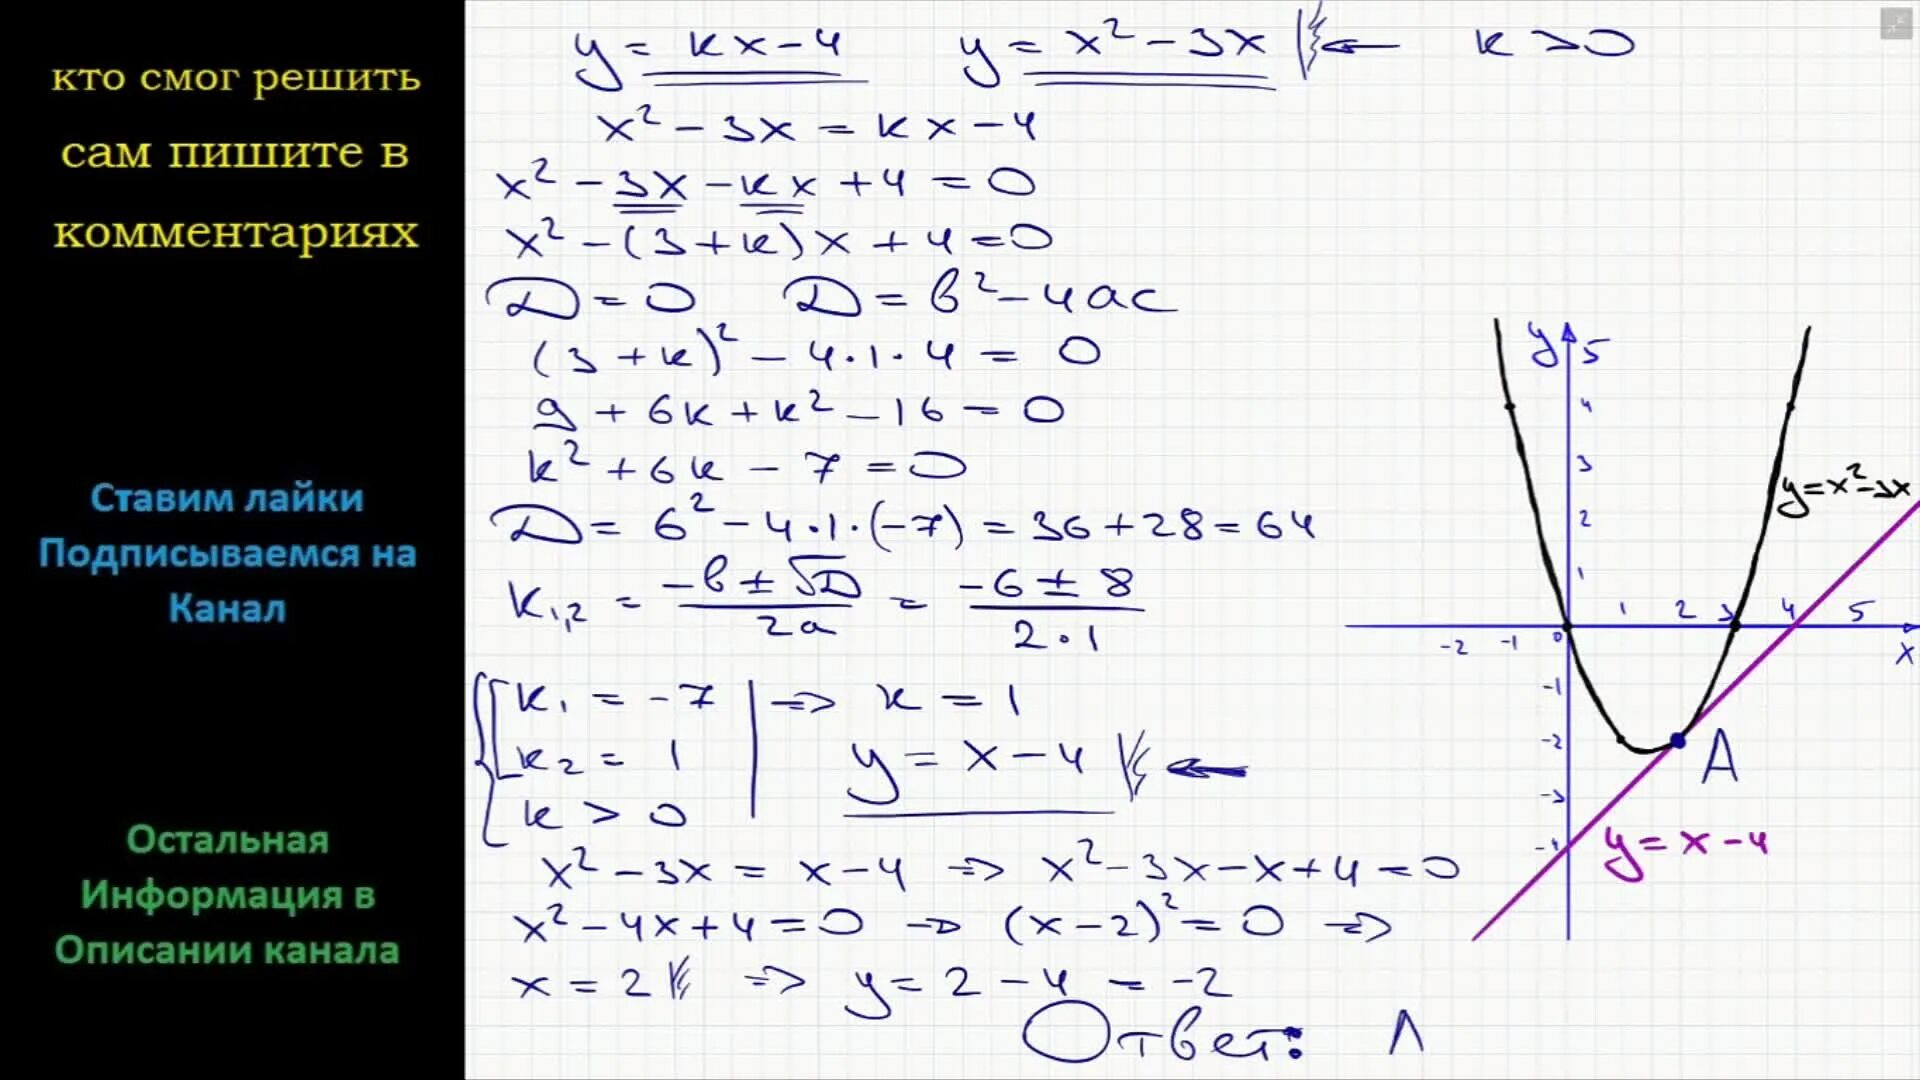 кто смог решить
сам пишите в
комментариях
Ставим лайки
Подписываемся на
Канал
Остальная
Информация в
Описании канала
y = kx - 4    y = x² - 3x    k > 0
x² - 3x = kx - 4
x² - 3x - kx + 4 = 0
x² - (3 + k)x + 4 = 0
D = 0    D = b² - 4ac
(3 + k)² - 4·1·4 = 0
9 + 6k + k² - 16 = 0
k² + 6k - 7 = 0
D = 6² - 4·1·(-7) = 36 + 28 = 64
k₁,₂ = (-b ± √D)/(2a) = (-6 ± 8)/(2·1)
k₁ = -7 ⇒ k = 1
k₂ = 1    y = x - 4
k > 0
x² - 3x = x - 4 ⇒ x² - 3x - x + 4 = 0
x² - 4x + 4 = 0 ⇒ (x - 2)² = 0 ⇒
x = 2 ⇒ y = 2 - 4 = -2
Ответ:
y 5
4
3
2
1
-2 -1 0 1 2 3 4 5 x
-1
-2
-3
-4
y = x² - 3x
A
y = x - 4